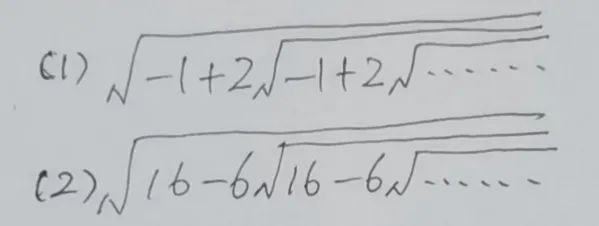 (1) √-1+2√-1+2√......
(2) √16-6√16-6√......